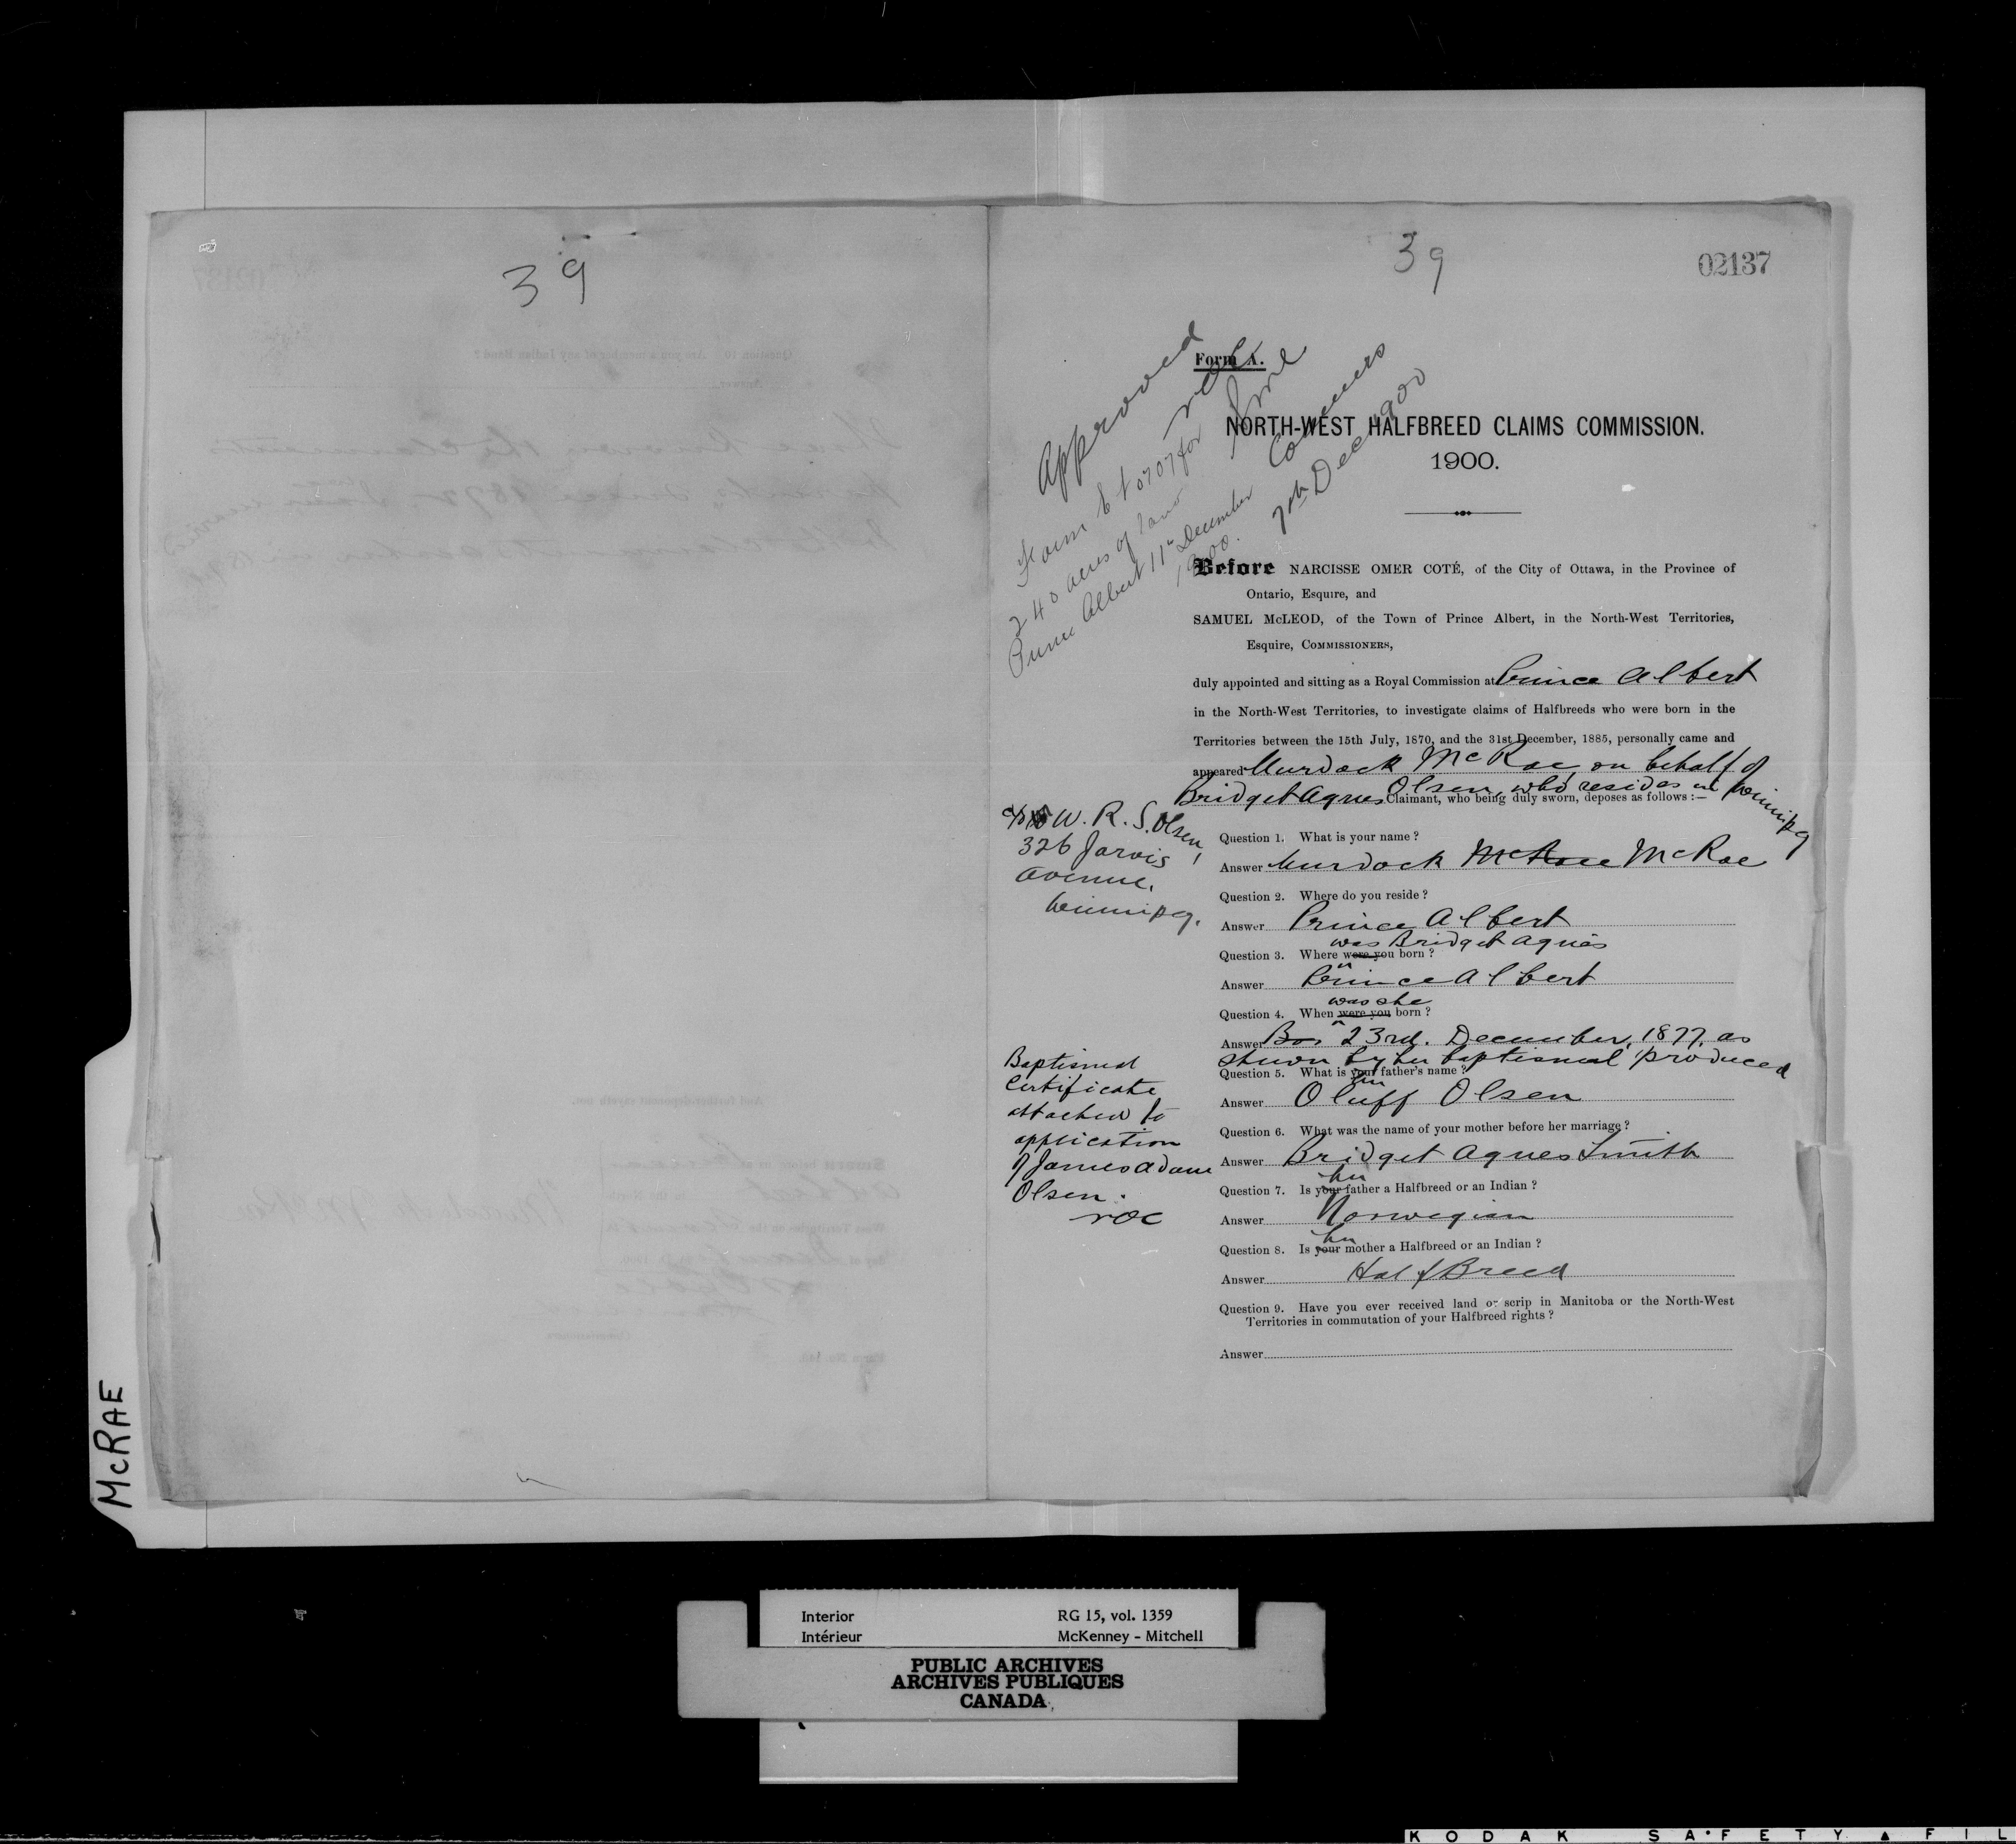 39
39
02137
Form A.
Approved
NORTH-WEST HALFBREED CLAIMS COMMISSION.
1900.
7th Dec 1900
240 acres of land
Prince Albert 11th December
1900.
Before NARCISSE OMER COTÉ, of the City of Ottawa, in the Province of
Ontario, Esquire, and
SAMUEL McLEOD, of the Town of Prince Albert, in the North-West Territories,
Esquire, COMMISSIONERS,
duly appointed and sitting as a Royal Commission at Prince Albert
in the North-West Territories, to investigate claims of Halfbreeds who were born in the
Territories between the 15th July, 1870, and the 31st December, 1885, personally came and
appeared Murdock McRae, on behalf of
Bridget Agnes Olsen, who resides in Winnipeg
Claimant, who being duly sworn, deposes as follows :—
W. R. S. Olsen,
326 Jarvis
Avenue.
Winnipeg.
Question 1. What is your name ?
Answer Murdock McRae McRae
Question 2. Where do you reside ?
Answer Prince Albert
was Bridget Agnes
Question 3. Where were you born ?
Answer Prince Albert
was she
Question 4. When were you born ?
Answer 23rd. December, 1877, as
shown by her baptismal produced
Question 5. What is your father's name ?
her
Answer Oluff Olsen
Question 6. What was the name of your mother before her marriage ?
Answer Bridget Agnes Smith
her
Question 7. Is your father a Halfbreed or an Indian ?
Answer Norwegian
her
Question 8. Is your mother a Halfbreed or an Indian ?
Answer Half Breed
Question 9. Have you ever received land or scrip in Manitoba or the North-West
Territories in commutation of your Halfbreed rights ?
Answer
Baptismal
Certificate
attached to
application
of James Adam
Olsen.
NOC
McRAE
Interior
Intérieur
RG 15, vol. 1359
McKenney - Mitchell
PUBLIC ARCHIVES
ARCHIVES PUBLIQUES
CANADA
KODAK SAFETY FIL